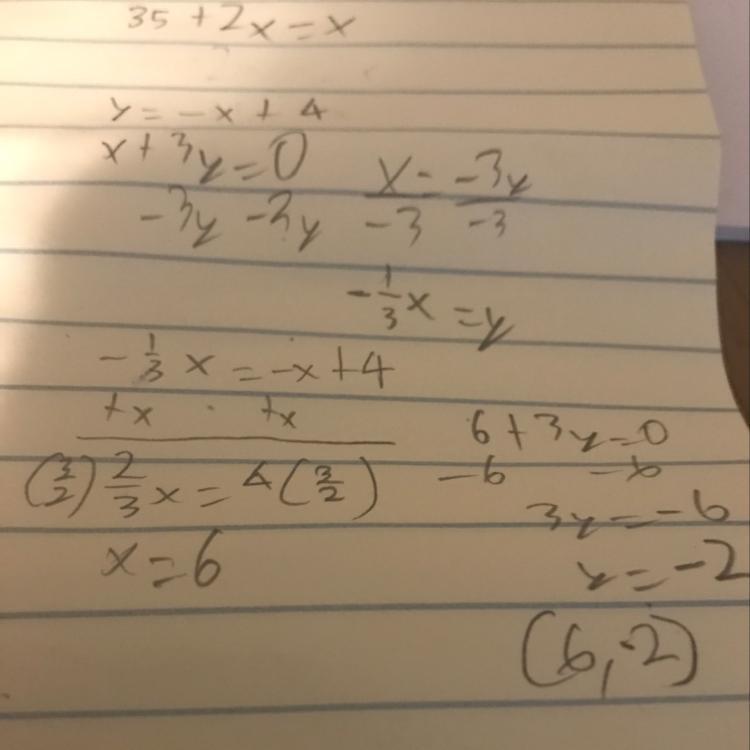 35 + 2x = x
y = -x + 4
x + 3y = 0
-3y -3y
x = -3y
-3 -3
-1/3 x = y
-1/3 x = -x + 4
+x +x
(3/2) 2/3 x = 4 (3/2)
x = 6
6 + 3y = 0
-6 -6
3y = -6
y = -2
(6, -2)